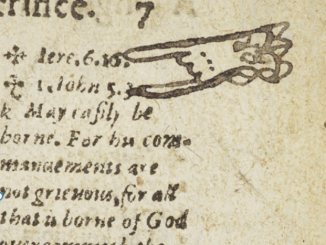 7
✣ Iere.6.16.
✣ 1.Iohn 5.3
k May easily be
borne. For his com-
mandements are
not grieuous, for all
that is borne of God